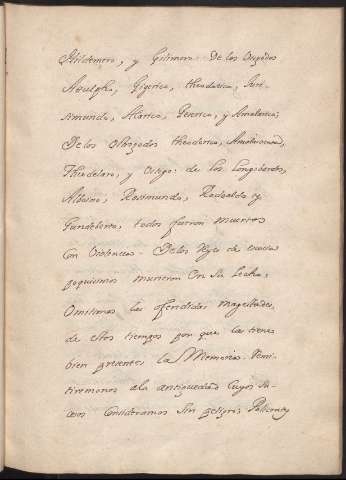 Hildemero, y Gilimero: De los Visigodos
Ataulpho, Gigerico, theodorico, Turi-
simundo, Alarico, Gezerico, y Amalarico;
De los Ostrogodos theodorico,
Theodelaro, y : de los Longobardos,
Alboino, Rosimundo, Rodoaldo y
Gundeberto, todos fueron muertos
con violencia. De los Reyes de
poquisimos murieron en su lecho,
Omitimos las ofendidas magestades,
de estos tiempos por que las tienes
bien presentes la Memoria. Remi-
tiremonos ala antiguedad cuyos su-
cesos consideramos sin peligro;